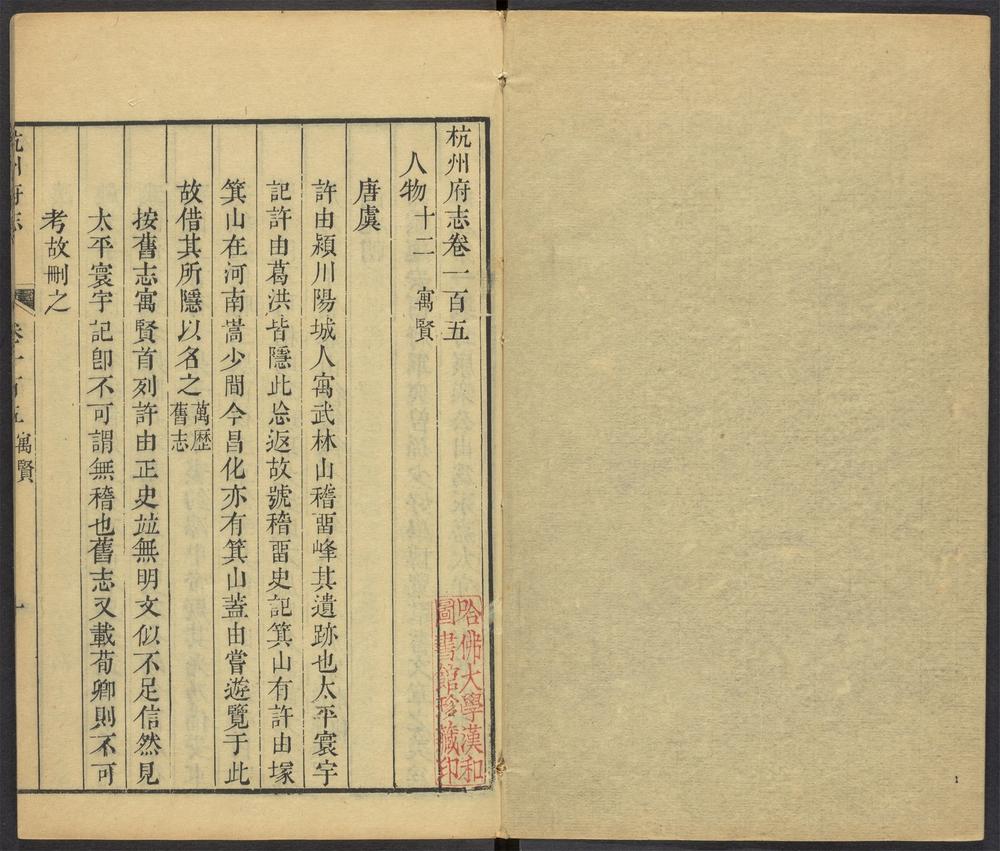 杭州府志卷一百五
人物十二　寓賢
唐虞
許由潁川陽城人寓武林山稽畱峰其遺跡也太平寰宇
記許由葛洪皆隱此忘返故號稽畱史記箕山有許由塚
箕山在河南嵩少間今昌化亦有箕山蓋由嘗遊覽于此
故借其所隱以名之萬歷
舊志
按舊志寓賢首列許由正史竝無明文似不足信然見
太平寰宇記卽不可謂無稽也舊志又載荀卿則不可
考故刪之
杭州府志　卷一百五　寓賢　一
哈佛大學漢和
圖書館珍藏印